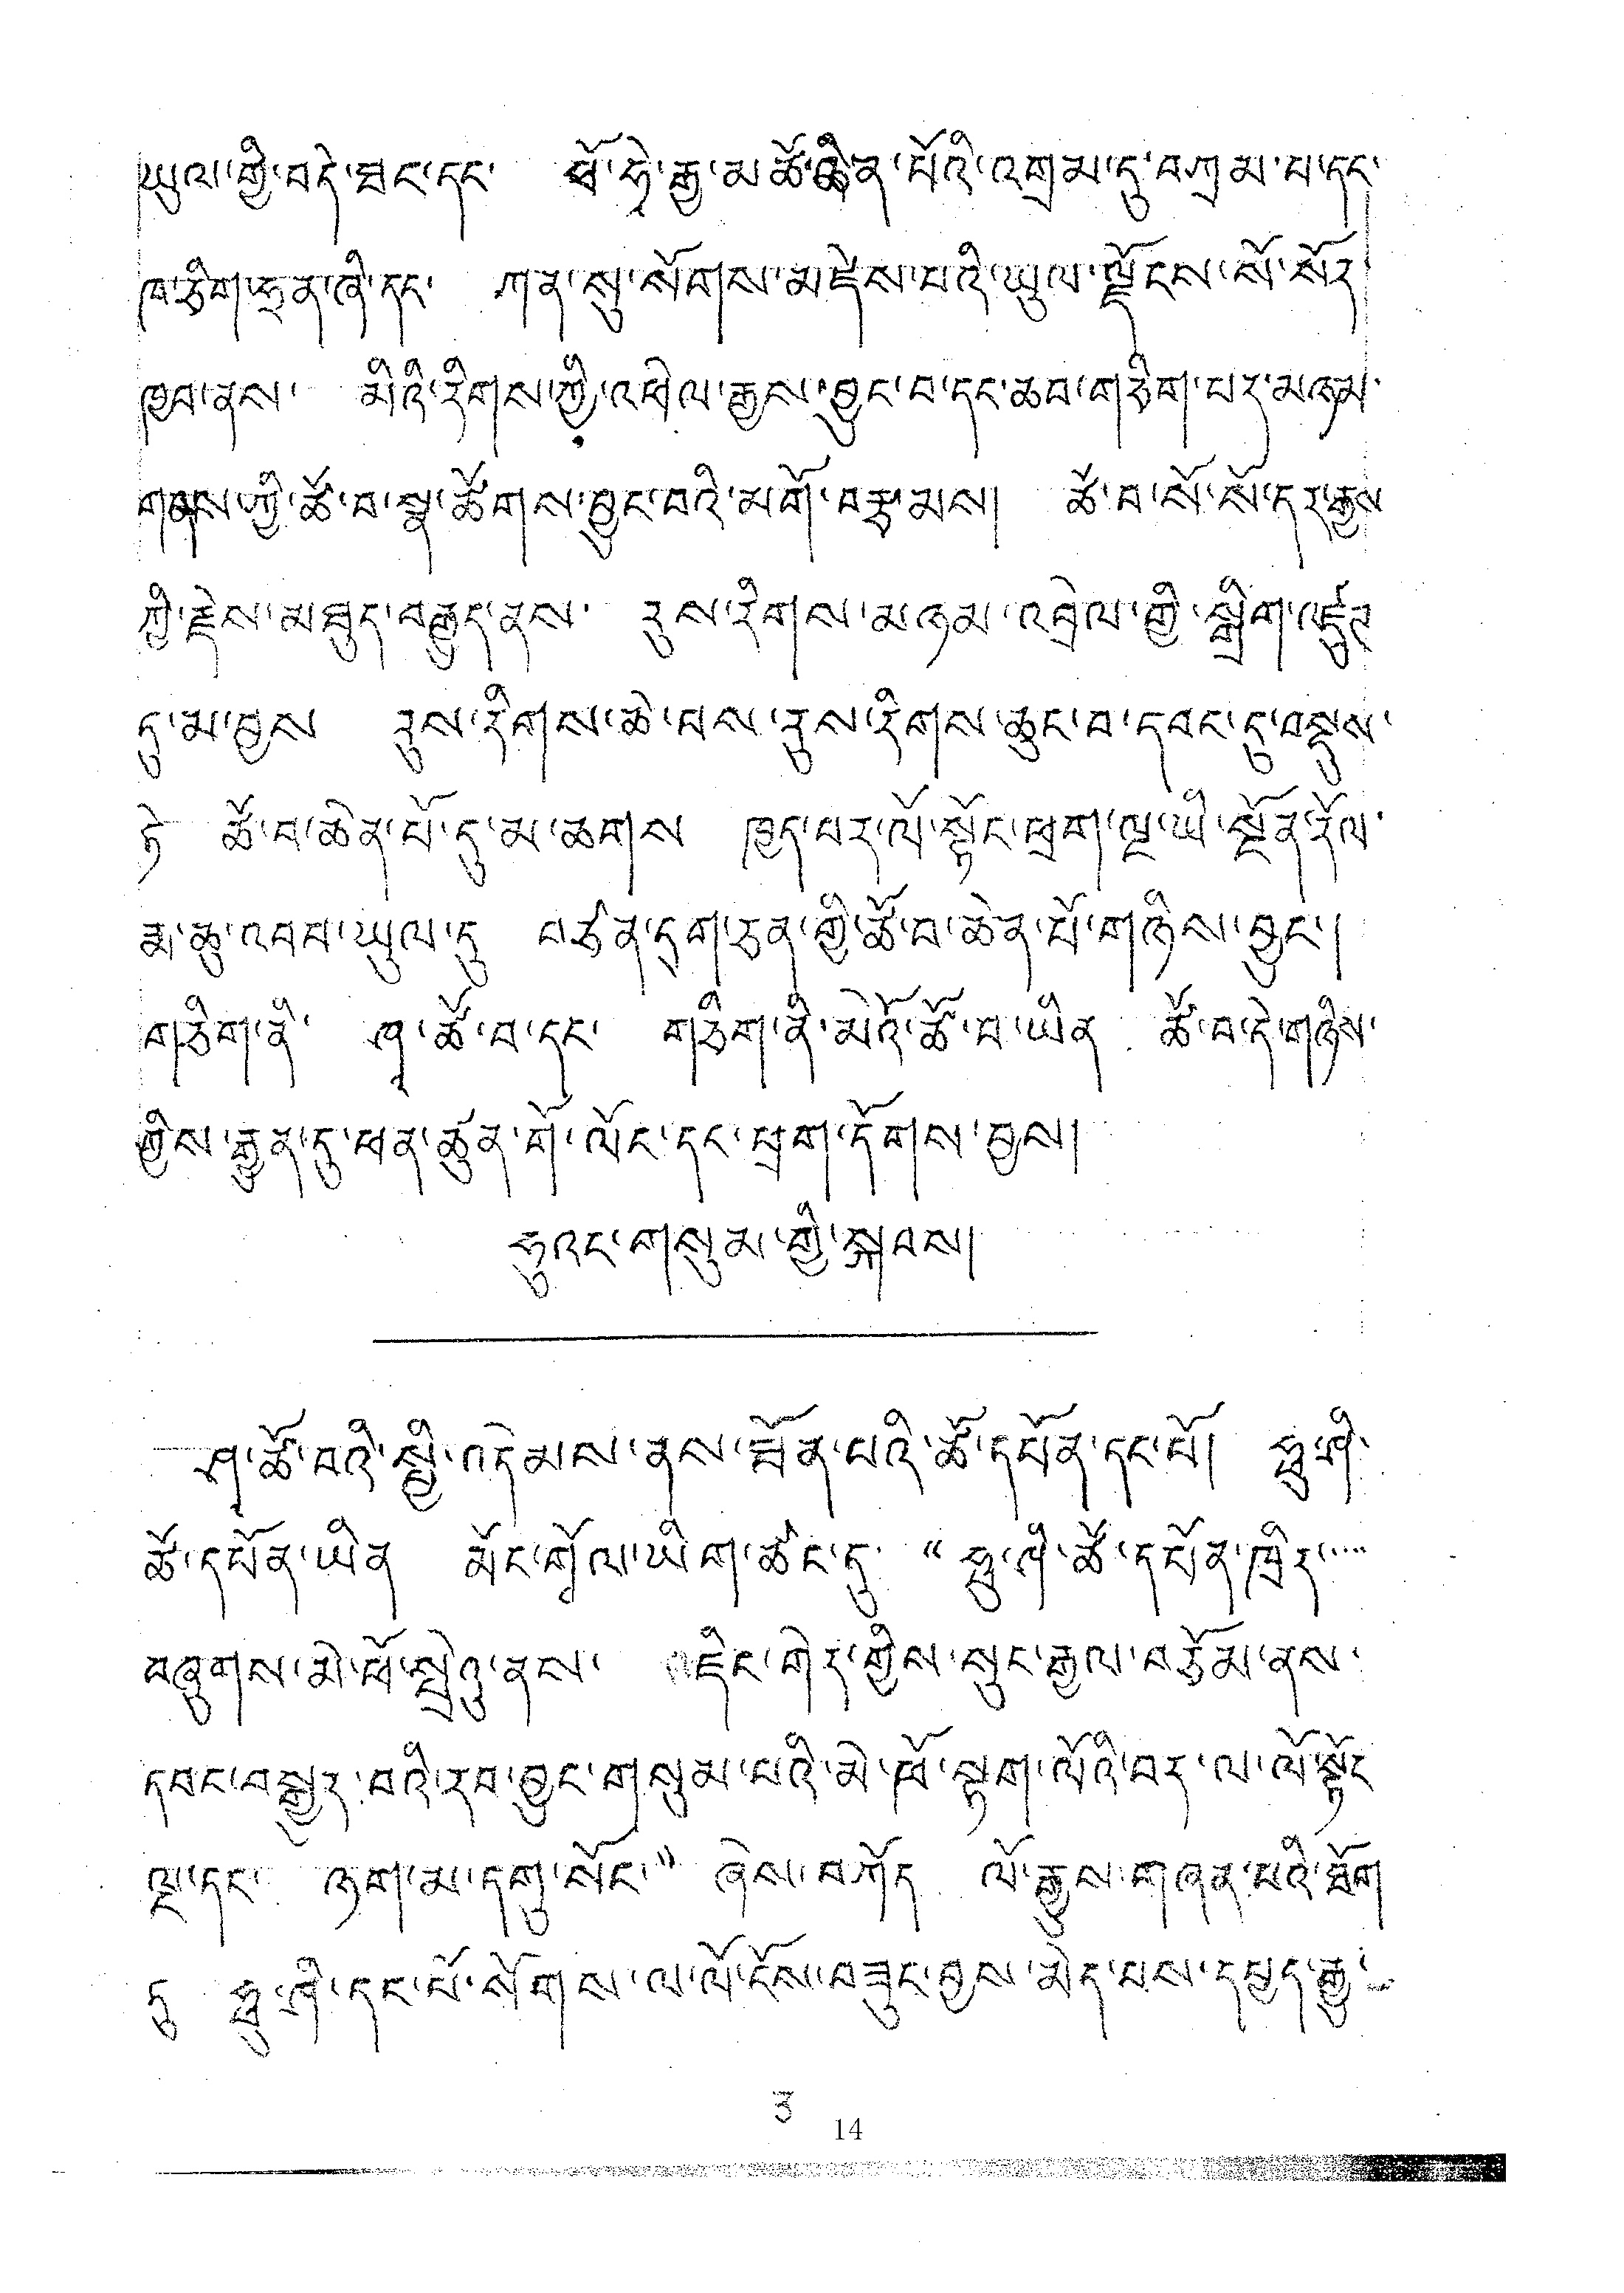 ཡུལ་གྱི་བདེ་ཐང་དང་ ཕོ་ཧེ་རྒྱ་མཚོ་ཆེན་པོའི་འགྲམ་དུ་བཀྲམ་པ་དང་
ཁ་ཅིག་ཧྲན་ཞི་དང་ ཀན་སུ་སོགས་མཛེས་པའི་ཡུལ་ལྗོངས་སོ་སོར
ཁྱབ་ནས་ མིའི་རིགས་ཀྱི་འཕེལ་རྒྱས་བྱུང་བ་དང་ཆབ་གཅིག་པར་མཉམ་
གནས་ཀྱི་ཚོ་བ་སྣ་ཚོགས་བྱུང་བའི་མགོ་བརྩམས། ཚོ་བ་སོ་སོ་དར་རྒྱས
ཀྱི་རྗེས་མཐུད་བརྒྱུད་ནས་ རུས་རིགས་མཉམ་འབྲེལ་གྱི་སྒྲིག་འཛུན
དུ་མ་བྱས རུས་རིགས་ཆེ་བས་རུས་རིགས་ཆུང་བ་དབང་དུ་བསྡུས་
ཏེ ཚོ་བ་ཆེན་པོ་དུ་མ་ཆགས ཁྱད་པར་ལོ་སྟོང་ཕྲག་ལྔ་ཡི་སྔོན་རོལ་
རྨ་ཆུ་འབབ་ཡུལ་དུ བཙན་དྲག་ཅན་གྱི་ཚོ་བ་ཆེན་པོ་གཉིས་བྱུང་།
གཅིག་ནི་ ཤ་ཚོ་བ་དང་ གཅིག་ནི་མེའོ་ཚོ་བ་ཡིན ཚོ་བ་དེ་གཉིས་
ཀྱིས་རྒྱུན་དུ་ཕན་ཚུན་གོ་ལོང་དང་ཕྲག་དོགས་བྱས།
ཧྭང་གསུམ་གྱི་སྐབས།
ཤ་ཚོ་བའི་སྤྱི་འདེམས་ནས་ཐོན་པའི་ཚོ་དཔོན་དང་པོ། ཧྥུ་ཤི་
ཚོ་དཔོན་ཡིན མོང་གོལ་ཡིག་ཚང་དུ "ཧྥུ་ཤི་ཚོ་དཔོན་ཁྲིར་
བཞུགས་མེ་ཕོ་སྤྲེའུ་ནས་ ཇིང་གེར་གྱིས་སུང་རྒྱལ་བཅོམ་ནས་
དབང་བསྒྱུར་བའི་རབ་བྱུང་གསུམ་པའི་མེ་ཕོ་སྟག་ལོའི་བར་ལ་ལོ་སྟོང
ལྔ་དང་ ཉག་མ་དགུ་སོང་" ཞེས་བཀོད ལོ་རྒྱུས་གཞན་པའི་ཐོག
ཏུ ཧྥུ་ཤི་དང་པོ་སོགས་ལ་ལོ་ངོས་བཟུང་བྱས་མེད་པས་དཔྱད་རྒྱུ་
༣
14